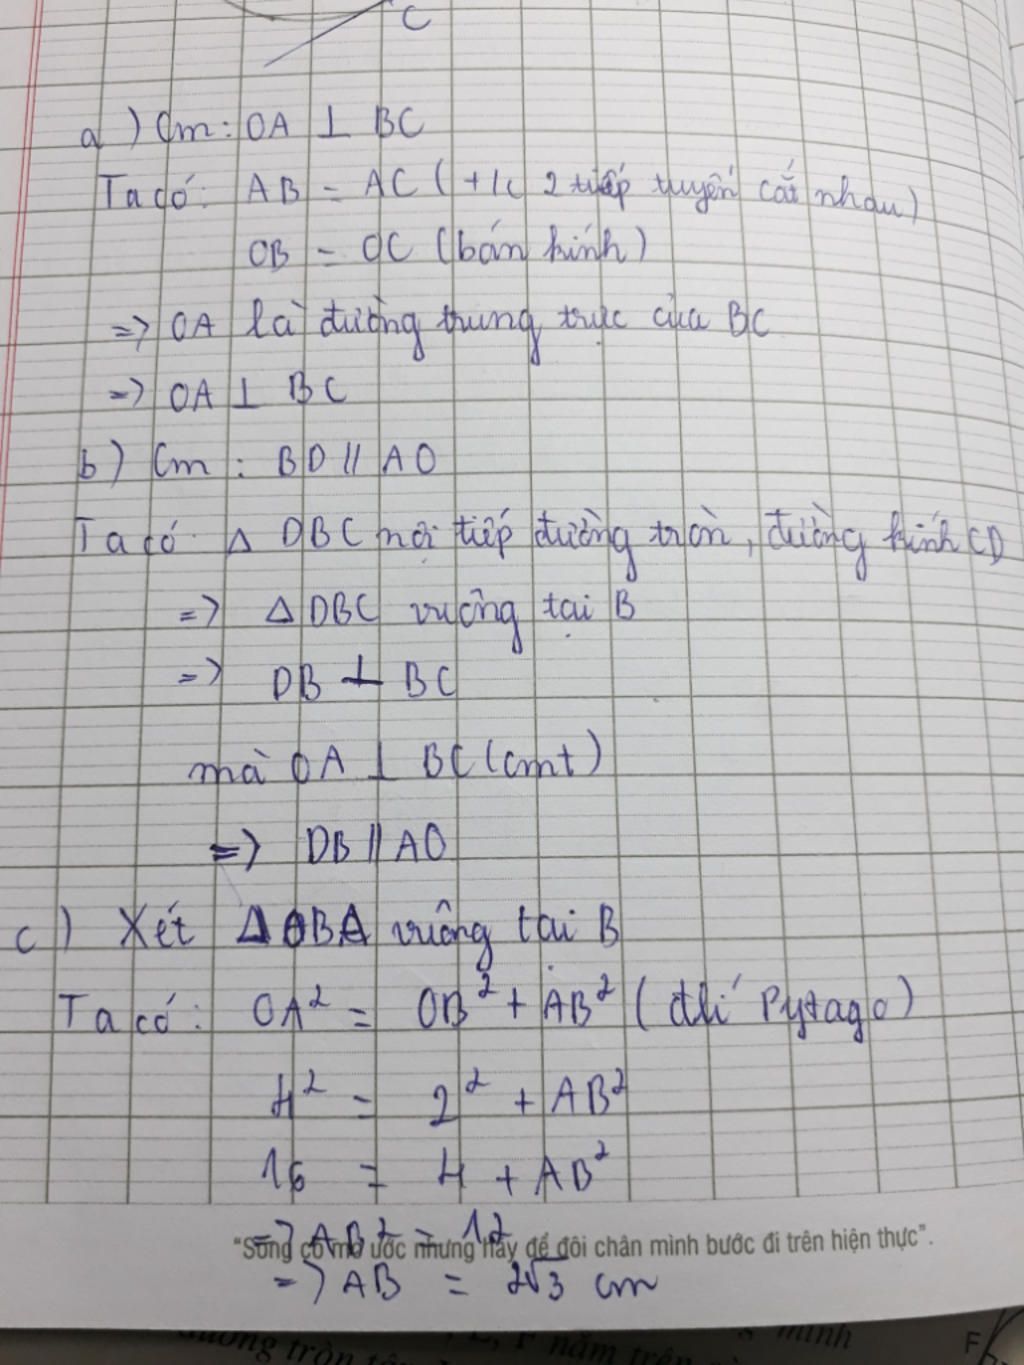 C
a) Cm: OA ⊥ BC
Ta có: AB = AC (t/c 2 tiếp tuyến cắt nhau)
OB = OC (bán kính)
=> OA là đường trung trực của BC
=> OA ⊥ BC
b) Cm: BD // AO
Ta có Δ DBC nội tiếp đường tròn, đường kính CD
=> Δ DBC vuông tại B
=> DB ⊥ BC
mà OA ⊥ BC (cmt)
=> DB // AO
c) Xét Δ OBA vuông tại B
Ta có: OA² = OB² + AB² (đlí Pytago)
4² = 2² + AB²
16 = 4 + AB²
=> AB² = 12
"Sống có mơ ước nhưng hãy để đôi chân mình bước đi trên hiện thực".
=> AB = 2√3 cm
F